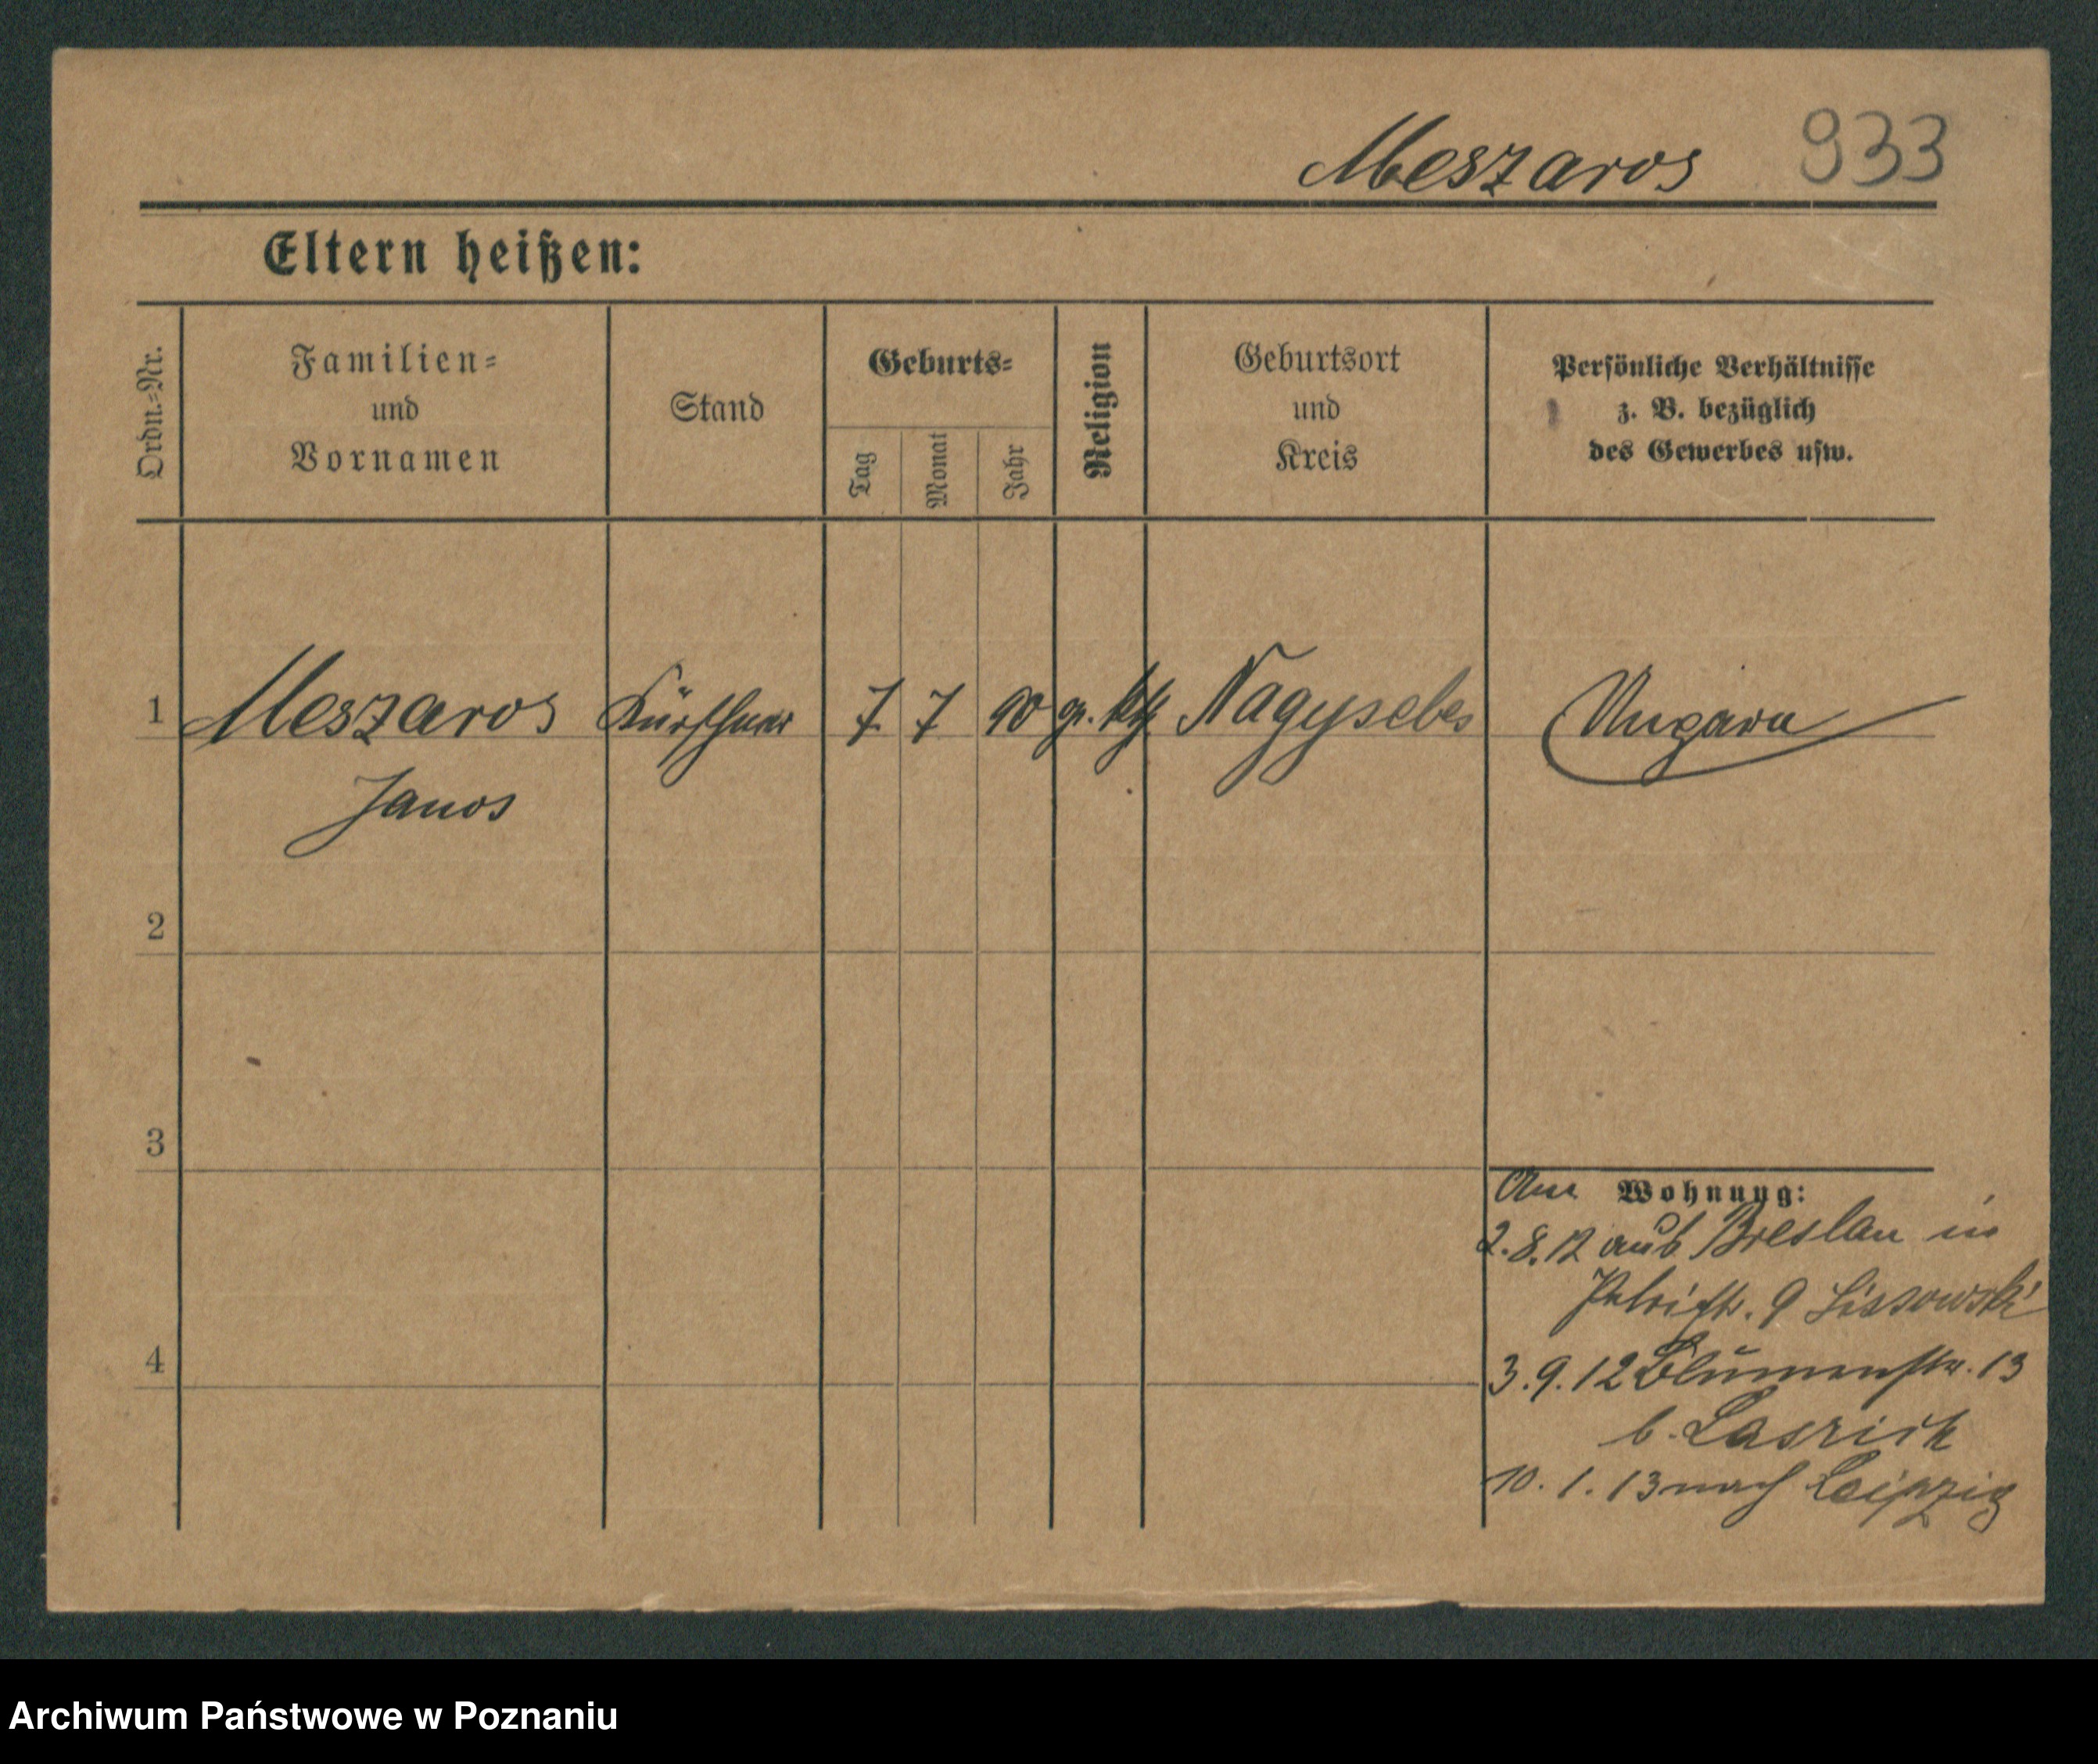 Meszaros 933
Eltern heißen:
Ordn.=Nr.
Familien=
und
Vornamen
Stand
Geburts=
Tag
Monat
Jahr
Religion
Geburtsort
und
Kreis
Persönliche Verhältnisse
z. B. bezüglich
des Gewerbes usw.
1 Meszaros Kürschner 7 7 90 gr. kth. Nagysebes Ungarn
Janos
2
3
Wohnung:
2.8.12 aus Breslau in
Petristr. 9 Lissowski
4
3.9.12 Blumenstr. 13
b.
10.1.13 nach Leipzig
Archiwum Państwowe w Poznaniu